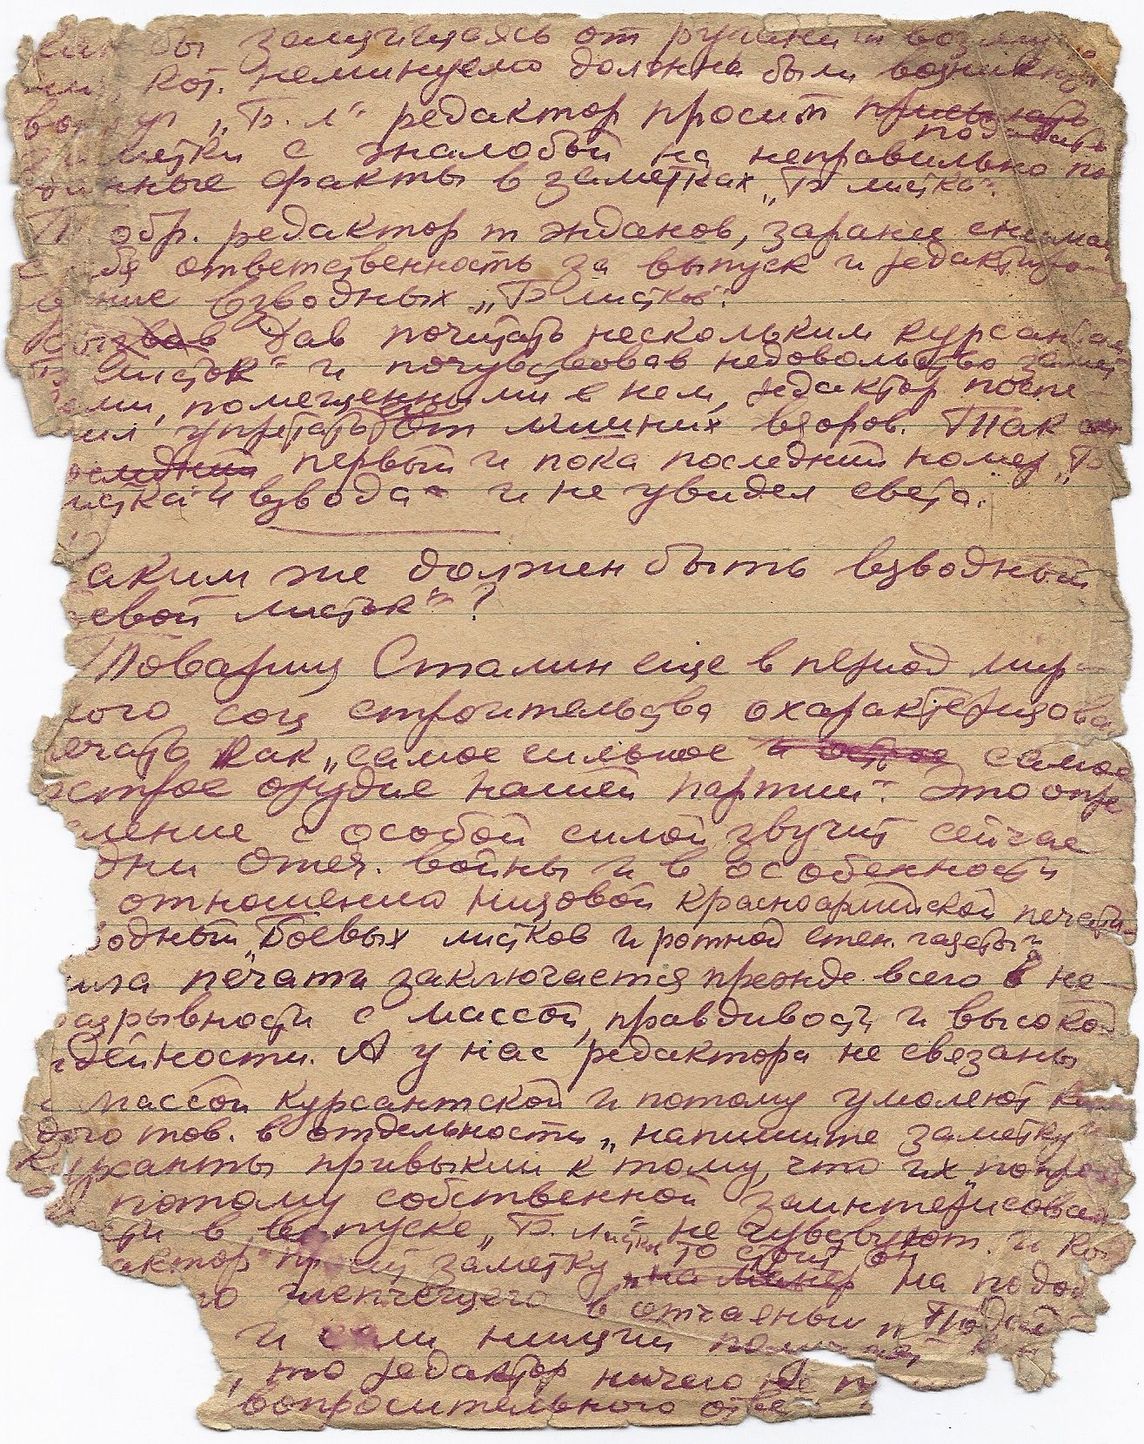 бы защищаясь от ругани и возму
кот. неминуемо должна были возникнуть
вокруг „Б. л“ редактор просит присылать
подавать
заметки с жалобой на неправильно по
данные факты в заметках „Б листка“.
обр. редактор т Жданов, заранее снимает
с себя ответственность за выпуск и редактиро-
вание взводных „Б листков“.
Дав почитать нескольким курсантам
„Б листок“ и почувствовав недовольство замет
ками, помещенными в нем, редактор поспе-
шил упрятать его от лишних взоров. Так
последний первый и пока последний номер „Б
листка“ 4 взвода и не увидел света.
аким же должен быть взводный
оевой листок“?
Товарищ Сталин еще в период мир-
ного соц строительства охарактеризовал
печать как „самое сильное и острое самое
острое орудие нашей партии“. Это опре
деление с особой силой звучит сейчас
дни Отеч. войны и в особенности
отношении низовой красноармейской печати-
водный „Боевых листков и ротной стен. газеты“
ила печати заключается прежде всего в не-
разрывности с массой, правдивости и высокой
идейности. А у нас редактора не связаны
массой курсантской и потому умоляют каж
дого тов. в отдельности „напишите заметку“
Курсанты привыкли к тому, что их „попросят“
потому собственной заинтересован
сти в выпуске „Б. листка“ не чувствуют. и ко
то стоит он
актор просит заметку на манер на подоб
го шепчущего в отчаяньи „Подай
и если нищий
, то редактор ничего не
вопросительного отве